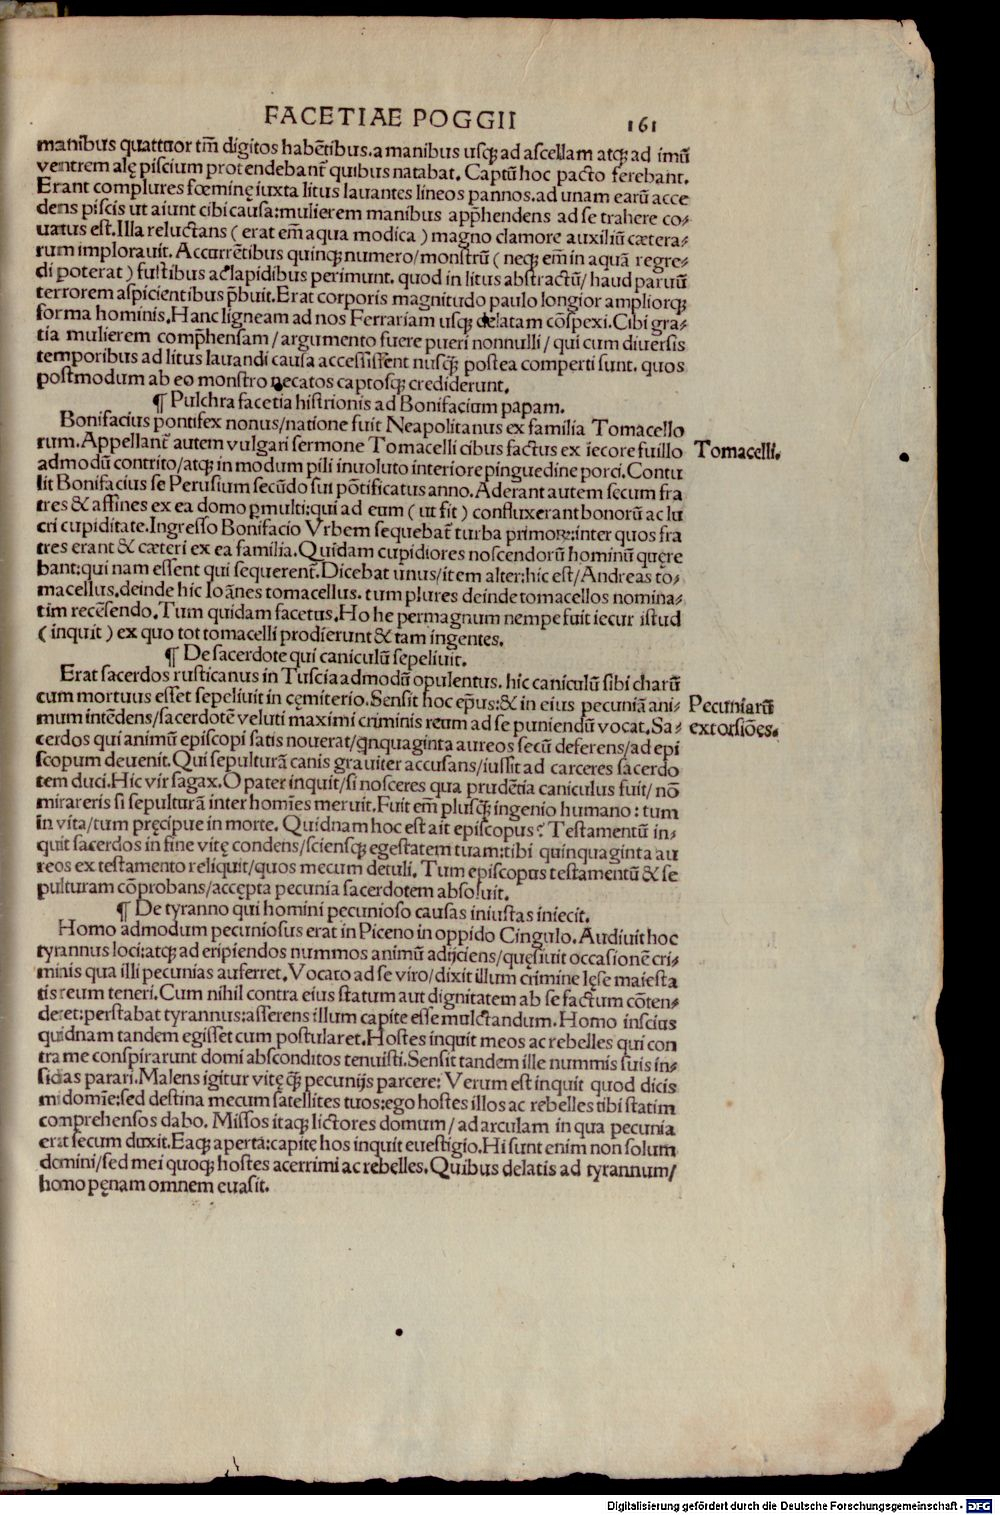 FACETIAE POGGII 161
manibus quattuor tm̄ digitos habētibus.a manibus usq; ad ascellam atq; ad imū
ventrem alę piscium protendebant̄ quibus natabat. Captū hoc pacto ferebant.
Erant complures fœminę iuxta litus lauantes lineos pannos.ad unam earū acce
dens piscis ut aiunt cibi causa:mulierem manibus app̄hendens ad se trahere co-
uatus est.Illa reluctans ( erat em̄ aqua modica ) magno clamore auxiliū cætera-
rum implorauit. Accurrētibus quinq; numero/monstrū ( neq; em̄ in aquā regre-
di poterat ) fustibus ac lapidibus perimunt. quod in litus abstractū/ haud paruū
terrorem aspicientibus p̄buit.Erat corporis magnitudo paulo longior ampliorq;
forma hominis.Hanc ligneam ad nos Ferrariam usq; delatam cōspexi.Cibi gra-
tia mulierem comp̄hensam/ argumento fuere pueri nonnulli/ qui cum diuersis
temporibus ad litus lauandi causa accessissent nusq̄; postea comperti sunt. quos
postmodum ab eo monstro necatos captosq; crediderunt.
¶ Pulchra facetia histrionis ad Bonifacium papam.
Bonifacius pontifex nonus/natione fuit Neapolitanus ex familia Tomacello
rum.Appellant̄ autem vulgari sermone Tomacelli cibus factus ex iecore suillo
Tomacelli.
admodū contrito/atq; in modum pili inuoluto interiore pinguedine porci.Contu
lit Bonifacius se Perusium secūdo sui pōtificatus anno. Aderant autem secum fra
tres & affines ex ea domo p̱multi:qui ad eum ( ut fit ) confluxerant bonorū ac lu
cri cupiditate.Ingresso Bonifacio Vrbem sequebat̄ turba primoꝝ:inter quos fra
tres erant & cæteri ex ea familia.Quidam cupidiores noscendorū hominū quęre
bant:qui nam essent qui sequerent̄.Dicebat unus/item alter:hic est/Andreas to-
macellus.deinde hic Ioānes tomacellus. tum plures deinde tomacellos nomina-
tim recēsendo. Tum quidam facetus.Ho he permagnum nempe fuit iecur istud
( inquit ) ex quo tot tomacelli prodierunt & tam ingentes.
¶ De sacerdote qui caniculū sepeliuit.
Erat sacerdos rusticanus in Tuscia admodū opulentus. hic caniculū sibi charū
cum mortuus esset sepeliuit in cęmiterio.Sensit hoc ep̄us:& in eius pecuniā ani-
Pecuniarū
mum intēdens/sacerdotē veluti maximi criminis reum ad se puniendū vocat.Sa-
extorsiōes.
cerdos qui animū episcopi satis nouerat/qnquaginta aureos secū deferens/ad epi
scopum deuenit. Qui sepulturā canis grauiter accusans/iussit ad carceres sacerdo
tem duci.Hic vir sagax.O pater inquit/si nosceres qua prudētia caniculus fuit/ nō
mirareris si sepulturā inter homīes meruit.Fuit em̄ plusq̄; ingenio humano : tum
in vita/tum pręcipue in morte. Quidnam hoc est ait episcopus? Testamentū in-
quit sacerdos in fine vitę condens/sciensq; egestatem tuam:tibi quinquaginta au
reos ex testamento reliquit/quos mecum detuli. Tum episcopus testamentū & se
pulturam cōprobans/accępta pecunia sacerdotem absoluit.
¶ De tyranno qui homini pecunioso causas iniustas iniecit.
Homo admodum pecuniosus erat in Piceno in oppido Cingulo.Audiuit hoc
tyrannus loci:atq; ad eripiendos nummos animū adijciens/quęsiuit occasionē cri-
minis qua illi pecunias auferret.Vocato ad se viro/dixit illum crimine lęse maiesta
tis reum teneri.Cum nihil contra eius statum aut dignitatem ab se factum cōten-
deret:perstabat tyrannus:asserens illum capite esse mulctandum.Homo inscius
quidnam tandem egisset cum postularet.Hostes inquit meos ac rebelles qui con
tra me conspirarunt domi absconditos tenuisti.Sensit tandem ille nummis suis in-
sidias parari.Malens igitur vitę q̄; pecunijs parcere: Verum est inquit quod dicis
mi domīe:sed destina mecum satellites tuos:ego hostes illos ac rebelles tibi statim
comprehensos dabo. Missos itaq; lictores domum/ ad arculam in qua pecunia
erat secum duxit.Eaq; aperta:capite hos inquit euestigio.Hi sunt enim non solum
domini/sed mei quoq; hostes acerrimi ac rebelles.Quibus delatis ad tyrannum/
homo pęnam omnem euasit.
Digitalisierung gefördert durch die Deutsche Forschungsgemeinschaft - DFG